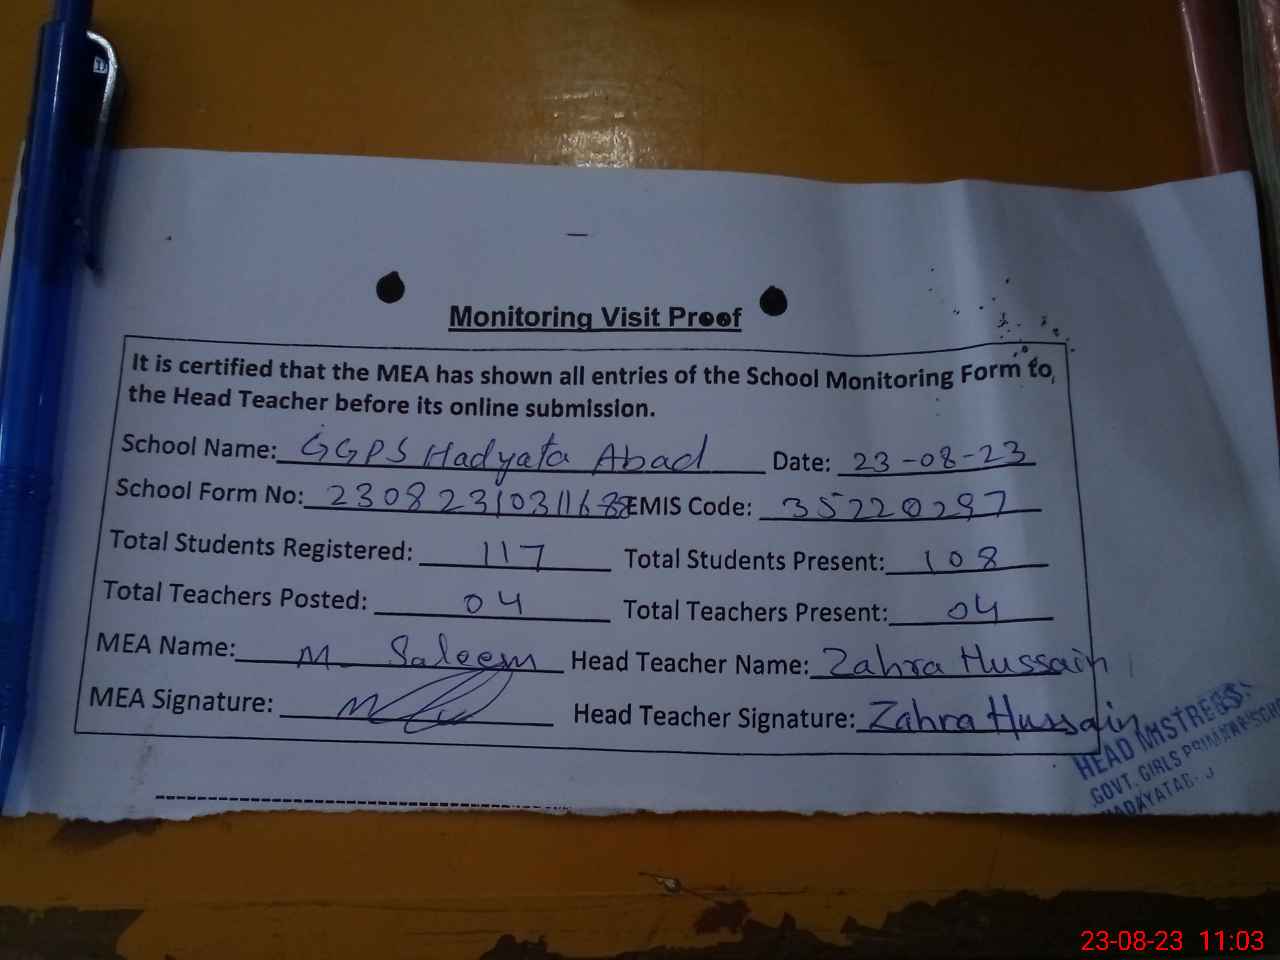 Monitoring Visit Proof
It is certified that the MEA has shown all entries of the School Monitoring Form to,
the Head Teacher before its online submission.
School Name: GGPS Hadyata Abad Date: 23-08-23
School Form No: EMIS Code: 35220297
Total Students Registered: 117 Total Students Present: 108
Total Teachers Posted: 04 Total Teachers Present: 04
MEA Name: M. Saleem Head Teacher Name: Zahra Hussain
MEA Signature: Head Teacher Signature: Zahra Hussain
HEAD MISTRESS
GOVT. GIRLS PRIMARY SCH
23-08-23 11:03